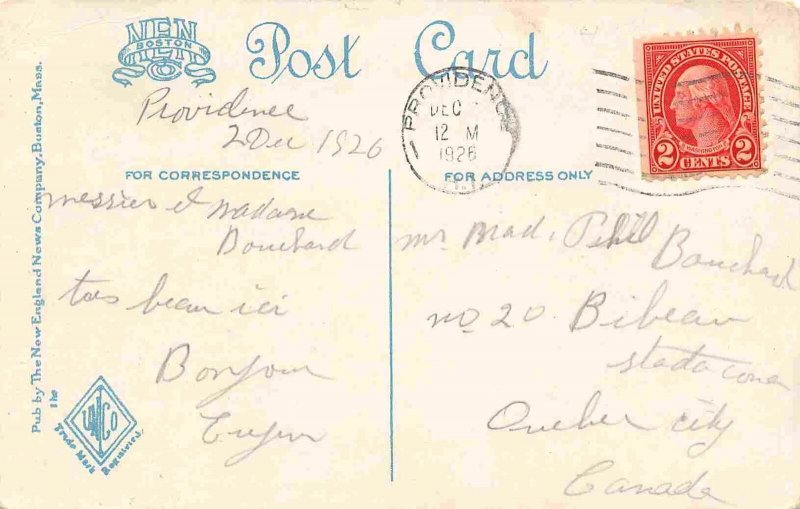 NEN
BOSTON
Post Card
PROVIDENCE
DEC
12 M
1926
R.I.
UNITED STATES POSTAGE
WASHINGTON
2 CENTS 2
Providence
2 Dec 1926
FOR CORRESPONDENCE
FOR ADDRESS ONLY
messier et madame
Bouchard
tres beau ici
Bonjour
Mr Mad. Phil Bouchard
no. 20 Bibeau
stadacona
Quebec city
Canada
Pub by The New England News Company, Boston, Mass.
The
UNCO
Trade Mark
Registered.